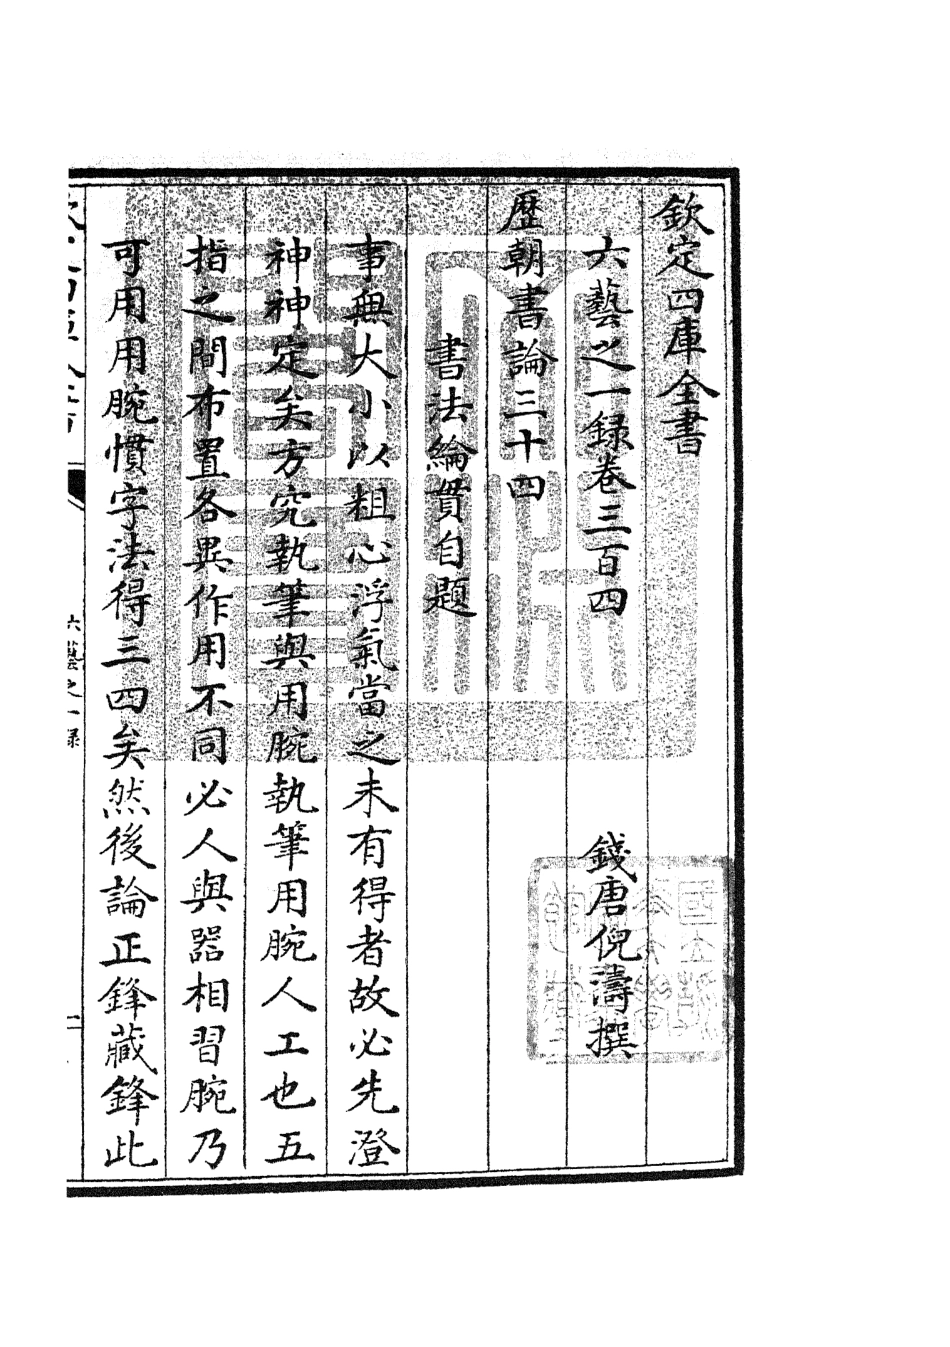 欽定四庫全書
六藝之一録卷三百四
錢唐倪濤撰
歴朝書論三十四
書法綸貫自題
事無大小以粗心浮氣當之未有得者故必先澄
神神定矣方究執筆與用腕執筆用腕人工也五
指之間布置各異作用不同必人與器相習腕乃
可用用腕慣字法得三四矣然後論正鋒藏鋒此
六藝之一録